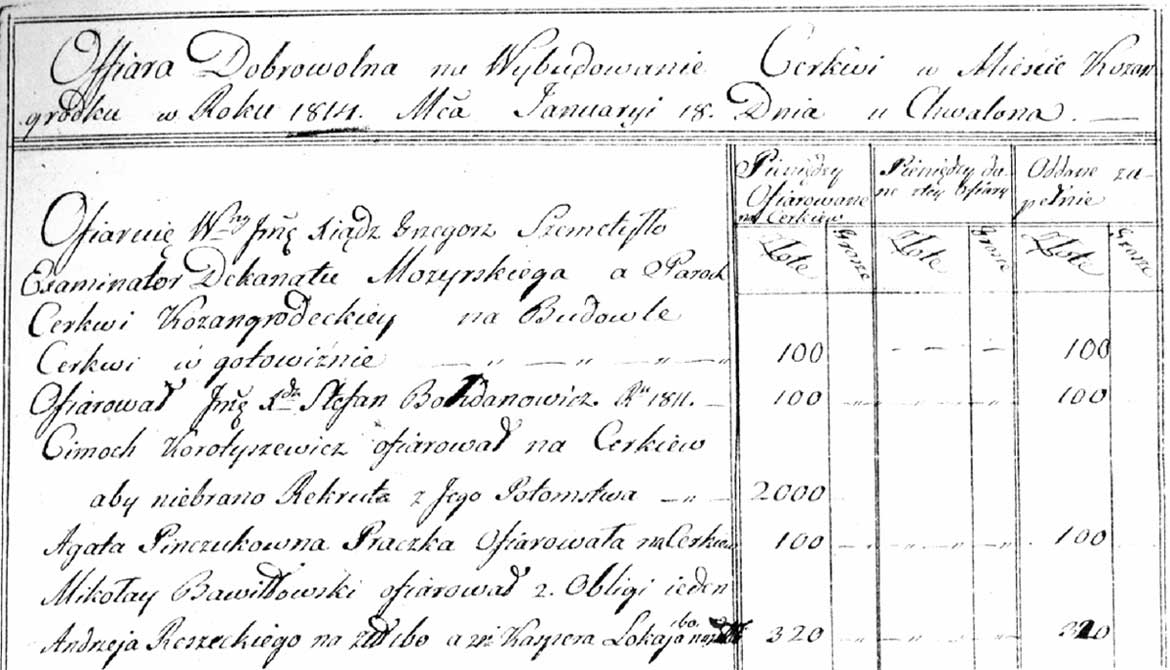 Offiara Dobrowolna na Wybudowanie Cerkwi w Mieście Kozan
gródku w Roku 1814. Mca Januaryi 18. Dnia u Chwalona.
Pieniędzy Ofiarowane na Cerkiew
Pieniędzy da-ne
Ofiary
Oddane zu-pełnie
Złote Grosze Złote Grosze Złote Grosze
Ofiaruię Wny Jmę Xiądz Grzegorz Szemetyłło
Examinator Dekanatu Mozyrskiego a Paroch
Cerkwi Kozangrodeckiey na Budowle
Cerkwi w gotowiźnie 100 100
Ofiarował Jmę Xdz Stefan Bohdanowicz Ru 1811. 100 100
Cimoch Korotyszewicz ofiarował na Cerkiew
aby niebrano Rekruta z Jego Potomstwa 2000
Agata Pinczukowna Praczka Ofiarowała na Cerkiew 100 100
Mikołay Bawitłowski ofiarował 2. Obligi ieden
Andrzeja Reszeckiego na a Kaspera Lokaja 320 320